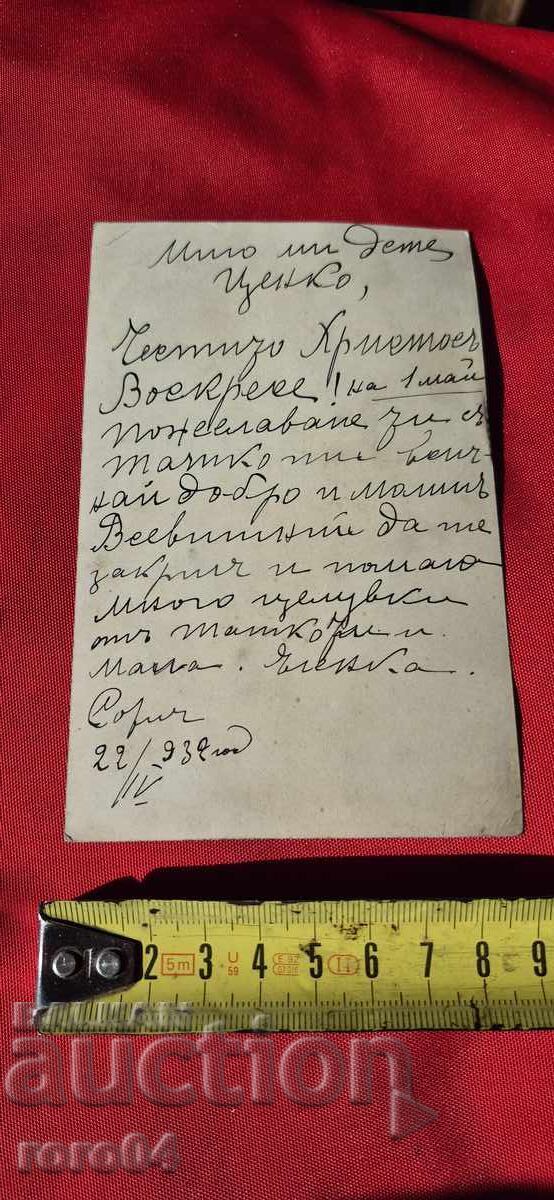 Мило ми дете
Ценко,
Честито Христосъ
Воскресе! на 1 май
пожелаваме
татко ти
най добро и моимъ
Всевишний да те
закриля и помага
много целувки
отъ татко ти и
мама. Еленка.
София
22/IV 932 год
2 5m 3 U 59 4 5 II 6 7 8 9
BALKAN
auction
roro04